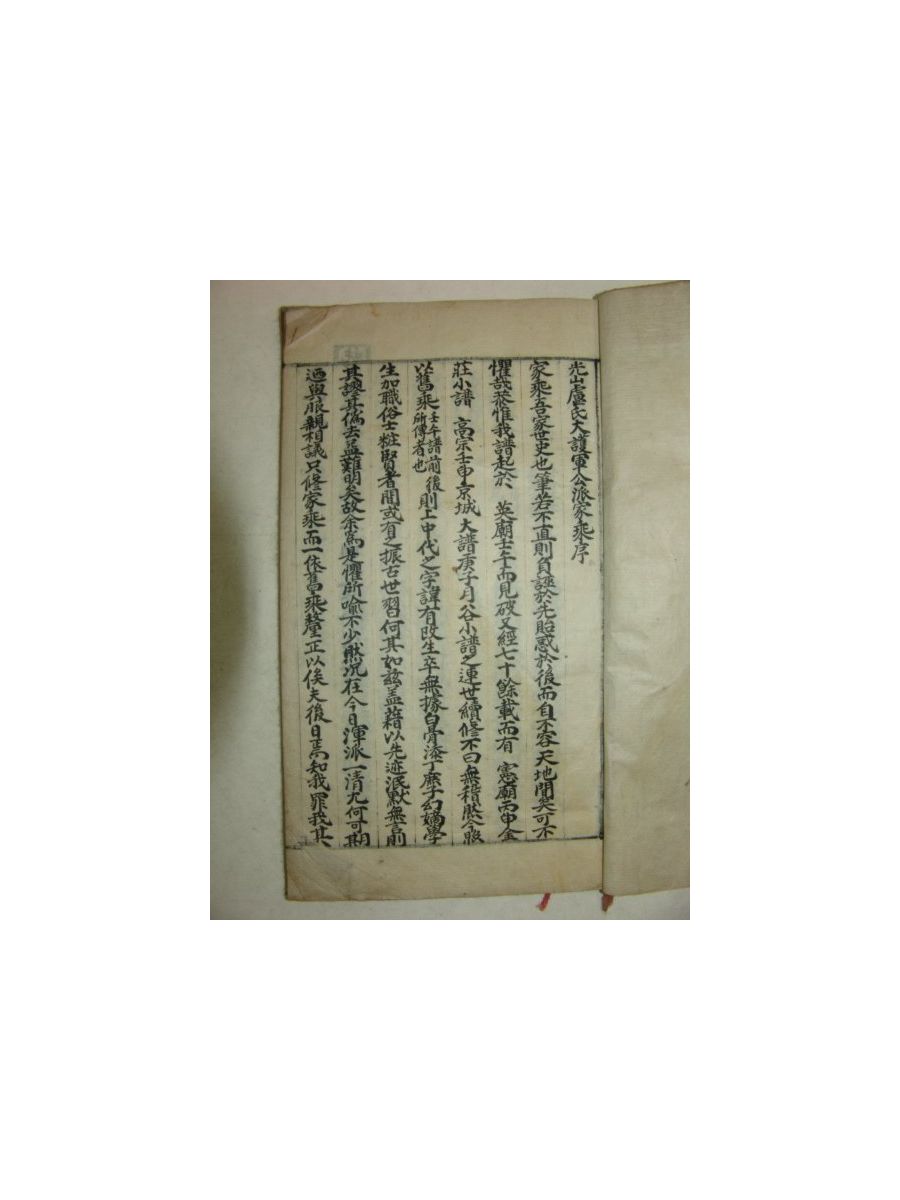 光山盧氏大護軍公派家乘序
家乘吾家世史也筆若不直則自誣於先貽惑於後而自不容天地間矣可不
懼哉恭惟我譜起於 英廟壬午而見破又經七十餘載而有 憲廟丙申金
莊小譜 高宗壬申京城大譜庚子月谷小譜之連世續修不曰無稽然今照
以舊乘壬午譜前所傳者也後則上中代之字諱有改生卒無據白骨漆丁糜子幻嫡學
生加職俗士粧賢者間或有之振古世習何其如玆盖藉以先迹泯默無言則
其謬其偽去益難明矣故余爲是懼所喩不少然况在今日渾派一清尤何可期
迺與服親相議只修家乘而一依舊乘釐正以俟夫後日焉知我罪我其